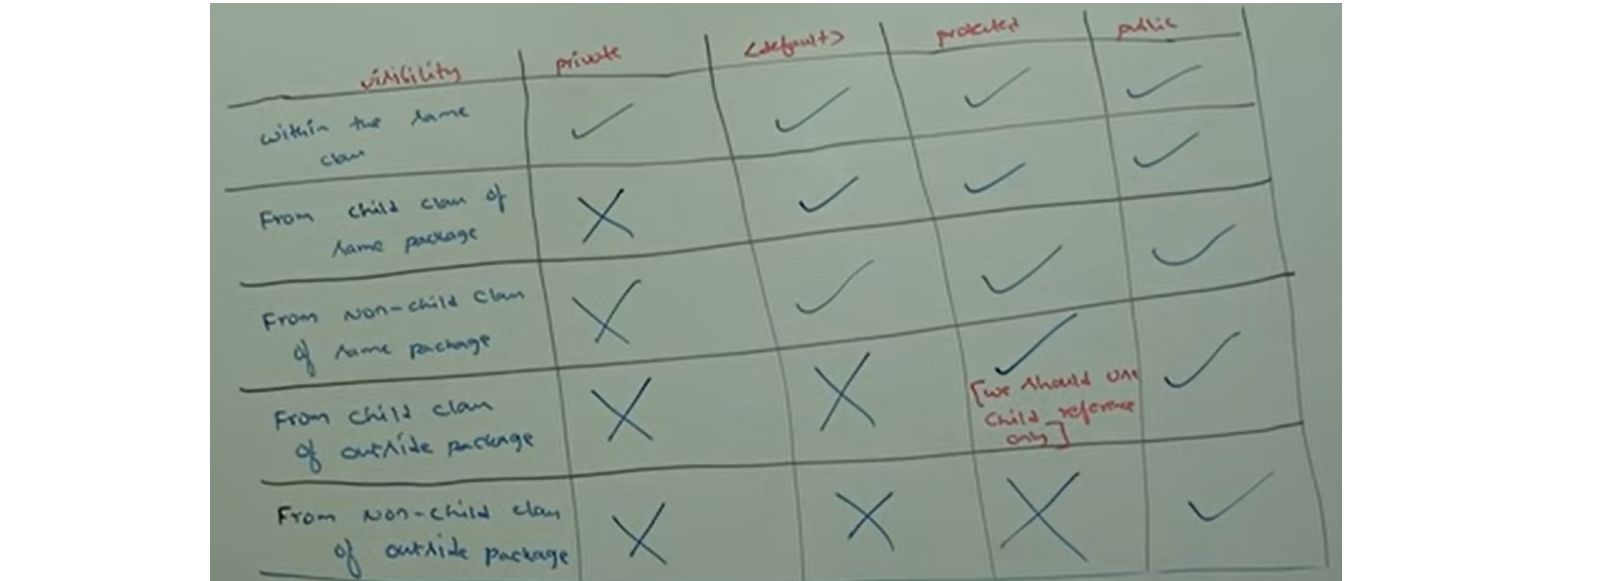 visibility private <default> protected public
within the same
class
From child class of
same package
From Non-child class
of same package
From child class
of outside package
[we should use
child reference
only]
From Non-child class
of outside package